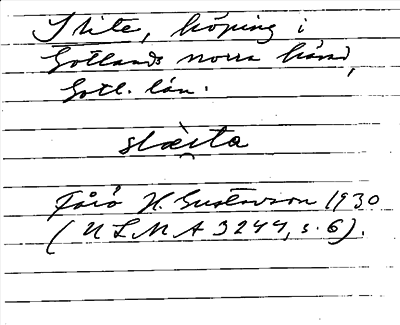 Slite, köping i
Gotlands norra härad,
Gotl. län.
slæita
Fårö H. Gustavson 1930
(ULMA 3244, s. 6).